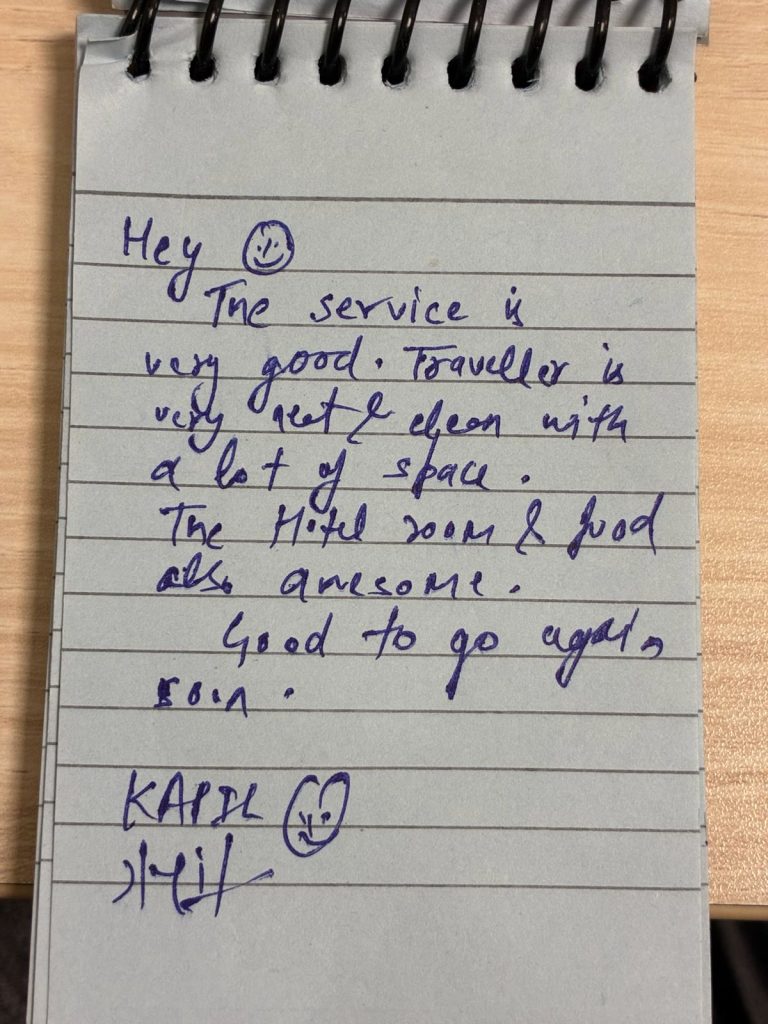 Hey
The service is
very good. Traveller is
very neat & clean with
a lot of space.
The Hotel room & food
also awesome.
Good to go again
soon.
KAPIL